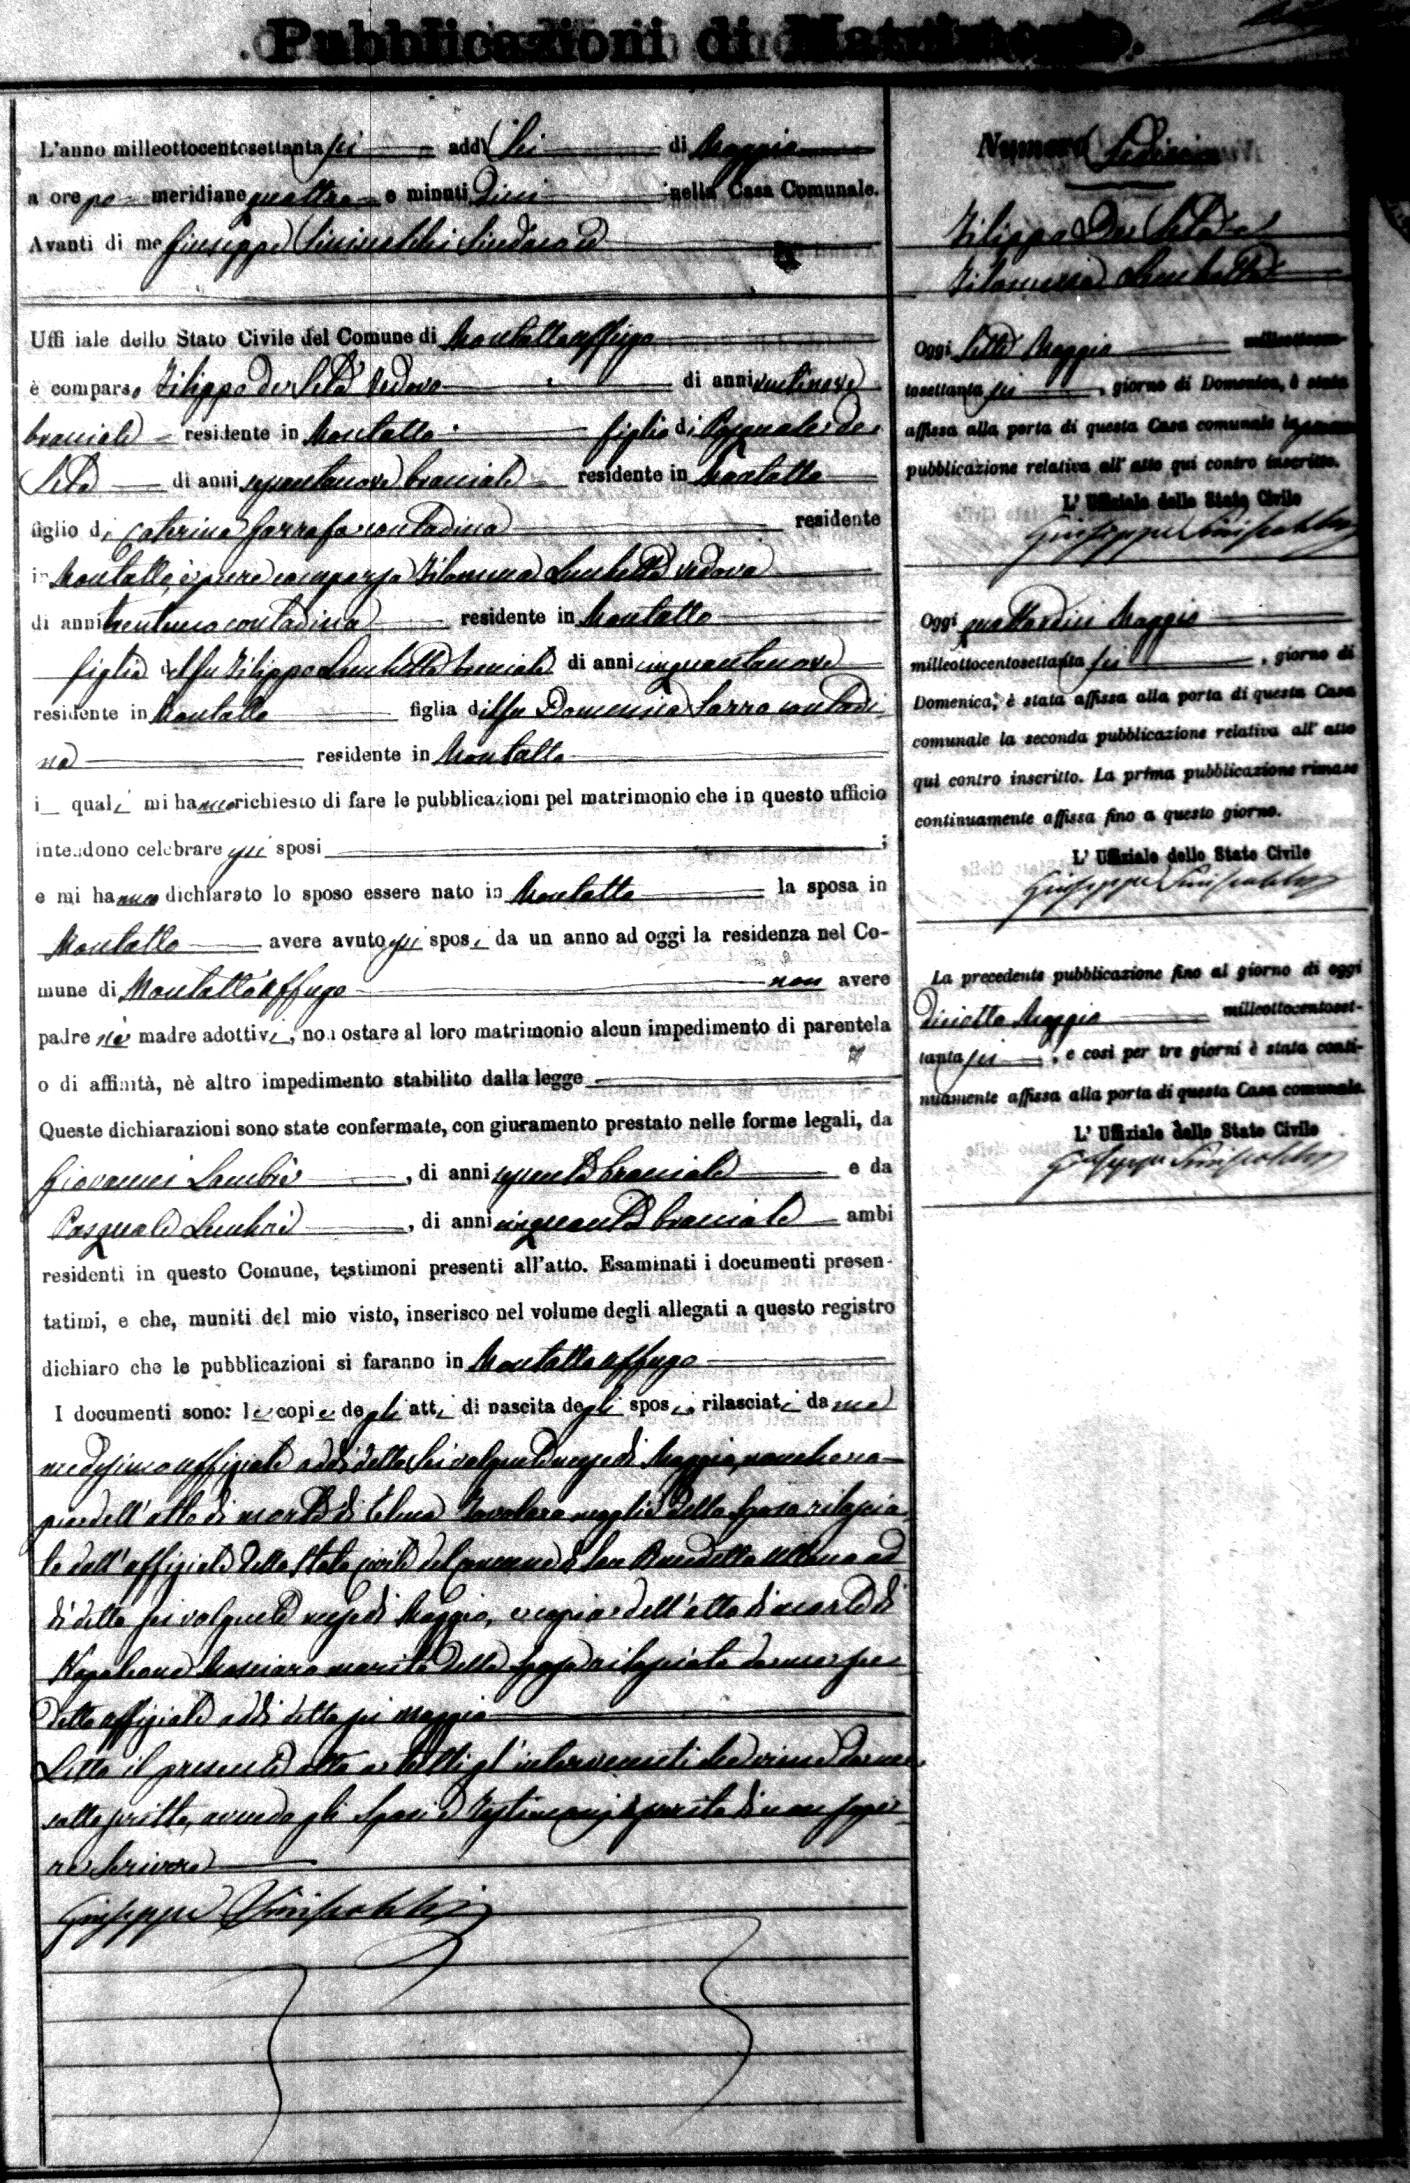 Pubblicazioni di Matrimonio.
L'anno milleottocentosettanta sei addì Sei di Maggio
a ore po meridiane quattro e minuti Dieci nella Casa Comunale.
Avanti di me Giuseppe Sinisalchi Sindaco ed
Uffi iale dello Stato Civile del Comune di Montalto uffugo
è comparso Filippo de Seta Vedovo di anni ventinove
bracciale residente in Montalto figlio di Pasquale de
Seta di anni bracciale residente in Montalto
figlio di Caterina contadina residente
in Montalto, è pure comparsa Filomena Lucchetta vedova
di anni trentuno contadina residente in Montalto
figlia del fu Filippo Lucchetta bracciale di anni cinquantanove
residente in Montalto figlia della fu Domenica Sarro contadi
na residente in Montalto
i quali mi hanno richiesto di fare le pubblicazioni pel matrimonio che in questo ufficio
intendono celebrare gli sposi ;
e mi hanno dichiarato lo sposo essere nato in Montalto la sposa in
Montalto avere avuto gli sposi da un anno ad oggi la residenza nel Co-
mune di Montalto Uffugo non avere
padre nè madre adottivi, non ostare al loro matrimonio alcun impedimento di parentela
o di affinità, nè altro impedimento stabilito dalla legge
Queste dichiarazioni sono state confermate, con giuramento prestato nelle forme legali, da
Giovanni di anni bracciale e da
Pasquale di anni cinquanta bracciale ambi
residenti in questo Comune, testimoni presenti all'atto. Esaminati i documenti presen-
tatimi, e che, muniti del mio visto, inserisco nel volume degli allegati a questo registro
dichiaro che le pubblicazioni si faranno in Montalto uffugo
I documenti sono: le copie degli atti di nascita degli sposi, rilasciati da me
medesimo uffiziale addì detto Sei volgente mese di Maggio, nonche co-
pia dell'atto di morte di Elena Tavolaro moglie dello sposo rilascia
to dall'uffiziale dello Stato Civile del Comune di San Benedetto Ullano ad
dì detto sei volgente mese di Maggio, e copia dell'atto di morte di
Napoleone marito della sposa rilasciato da me su
detto uffiziale addì detto sei maggio
Letto il presente atto a tutti gl'intervenuti viene da me
sottoscritto, avendo gli Sposi e Testimonj asserito di non sape
re Scrivere
Giuseppe Sinisalchi
Numero Sedici
Filippo De Seta ed
Filomena Lucchetta
Oggi Sette Maggio milleottocen-
tosettanta sei, giorno di Domenica, è stata
affissa alla porta di questa Casa comunale la prima
pubblicazione relativa all'atto qui contro inscritto.
L'Uffiziale dello Stato Civile
Giuseppe Sinisalchi
Oggi quattordici Maggio
milleottocentosettanta sei, giorno di
Domenica, è stata affissa alla porta di questa Casa
comunale la seconda pubblicazione relativa all'atto
qui contro inscritto. La prima pubblicazione rimase
continuamente affissa fino a questo giorno.
L'Uffiziale dello Stato Civile
Giuseppe Sinisalchi
La precedente pubblicazione fino al giorno di oggi
diciotto Maggio milleottocentoset-
tanta sei, e così per tre giorni è stata conti-
nuamente affissa alla porta di questa Casa comunale.
L'Uffiziale dello Stato Civile
Giuseppe Sinisalchi